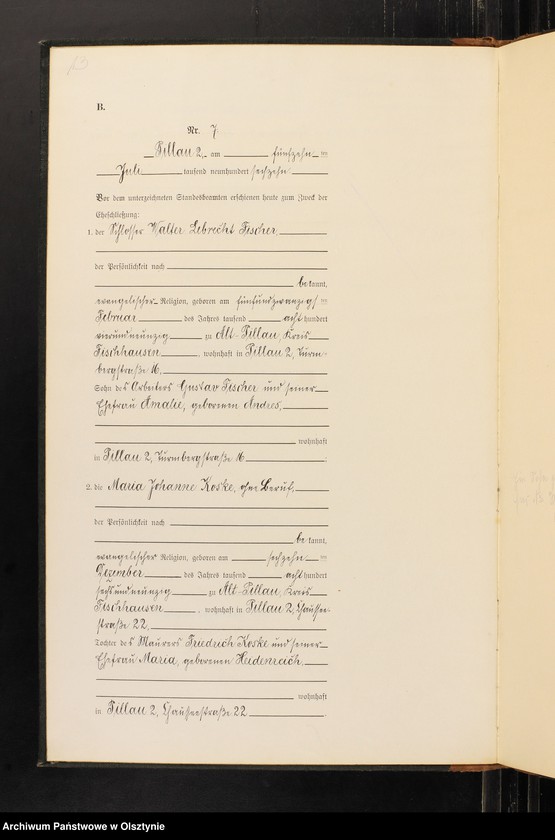 B.
Nr. 7
Pillau 2, am fünfzehn ten
Juli tausend neunhundert sechzehn
Vor dem unterzeichneten Standesbeamten erschienen heute zum Zweck der
Eheschließung:
1. der Schlosser Walter Lebrecht Fischer,
der Persönlichkeit nach
be kannt,
evangelischer Religion, geboren am fünfundzwanzig ten
Februar des Jahres tausend acht hundert
vierundneunzig zu Alt-Pillau, Kreis
Fischhausen, wohnhaft in Pillau 2, Turm-
bergstraße 16.
Sohn des Arbeiters Gustav Fischer und seiner
Ehefrau Amalie, geborenen Andres,
wohnhaft
in Pillau 2, Turmbergstraße 16
2. die Maria Johanne Koske, ohne Beruf,
der Persönlichkeit nach
be kannt,
evangelischer Religion, geboren am sechzehn ten
Dezember des Jahres tausend acht hundert
sechsundneunzig zu Alt-Pillau, Kreis
Fischhausen, wohnhaft in Pillau 2, Chaussee-
straße 22.
Tochter des Maurers Friedrich Koske und seiner
Ehefrau Maria, geborenen Heidenreich,
wohnhaft
in Pillau 2, Chausseestraße 22
Archiwum Państwowe w Olsztynie